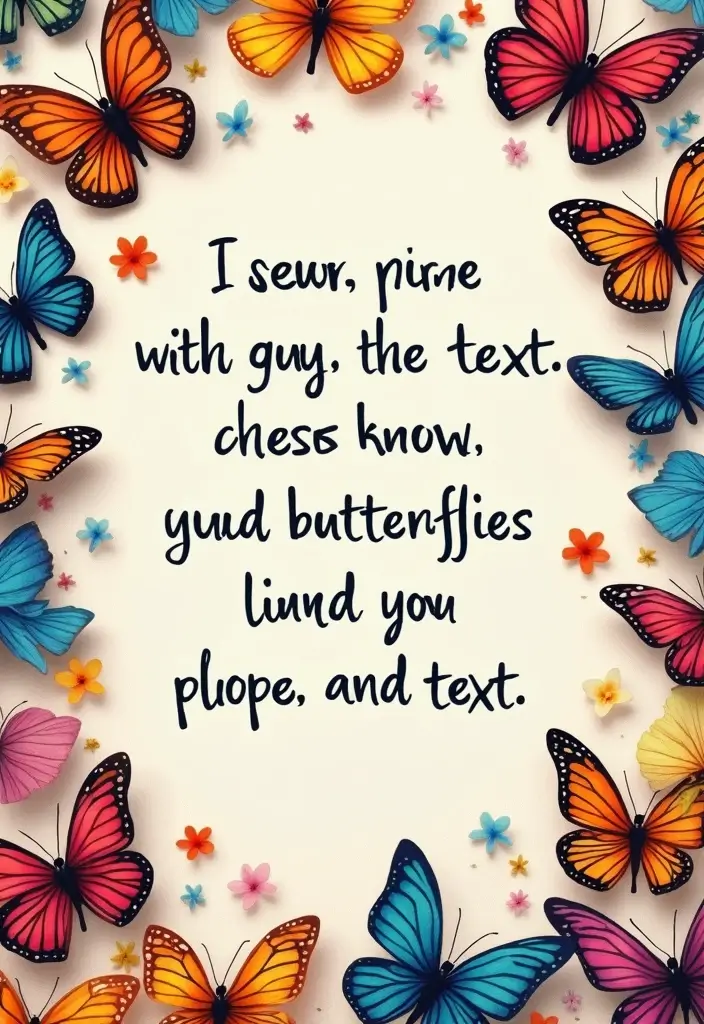 I sewr, pirne
with guy, the text.
chess know,
yuud butterflies
liund you
plope, and text.